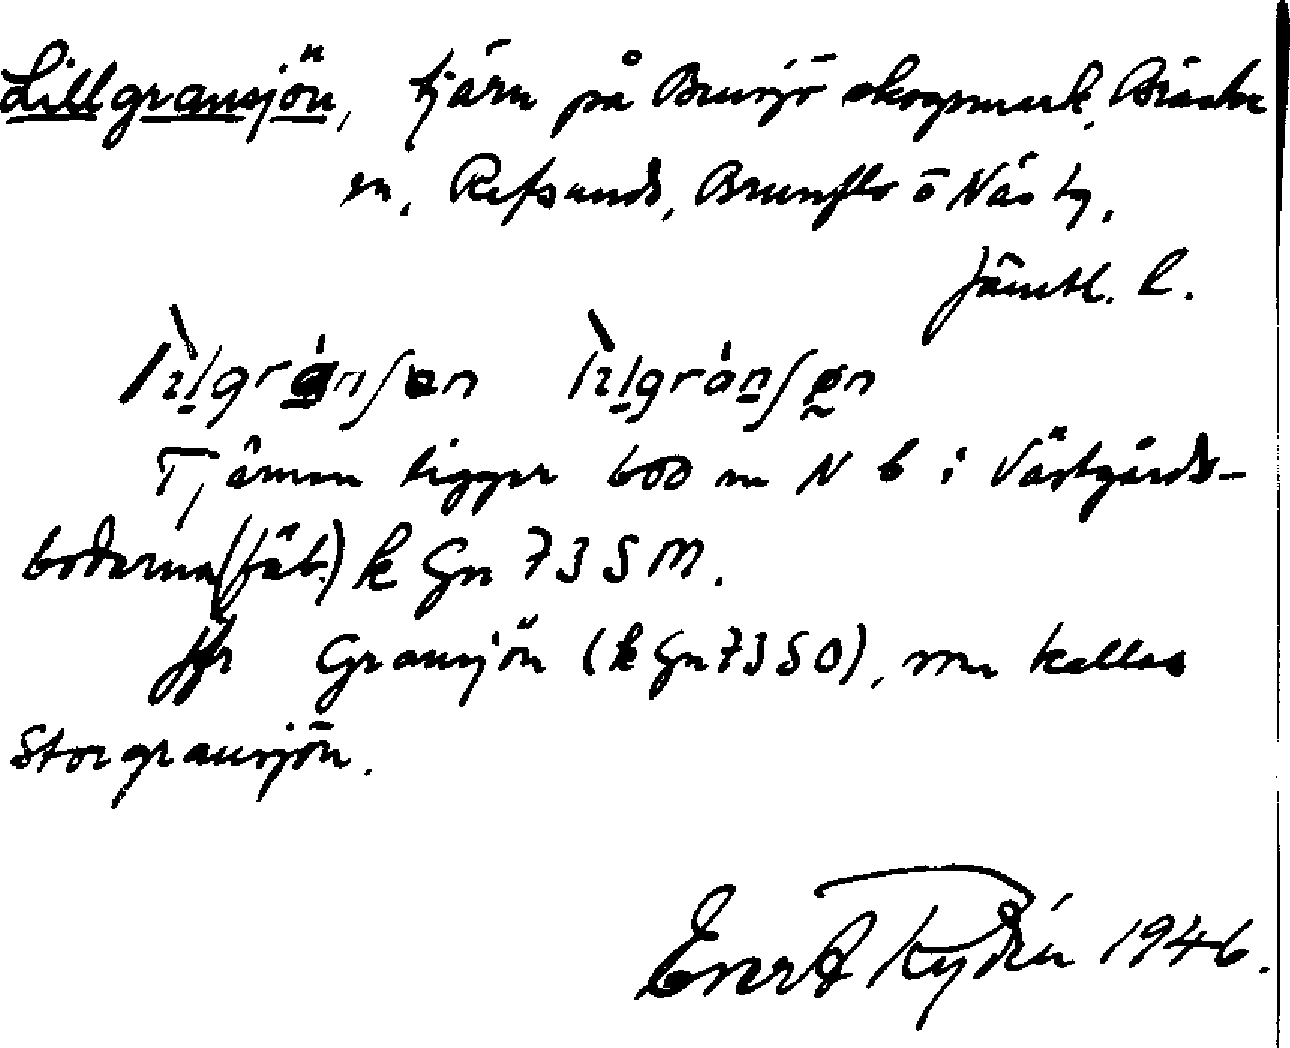 Lillgransjön, tjärn på Brusjö skogsmark, Bräcke
sn, Refsunds, Brunflo o Näs tg.
Jämtl. l.
Tjärnen ligger 600 m N b i Västgårds-
bodarna (fäb.) k Gn 73 S M.
Jfr Gransjön (k Gn 73 S O), som kallas
Storgransjön.
Evert Rydén 1946.